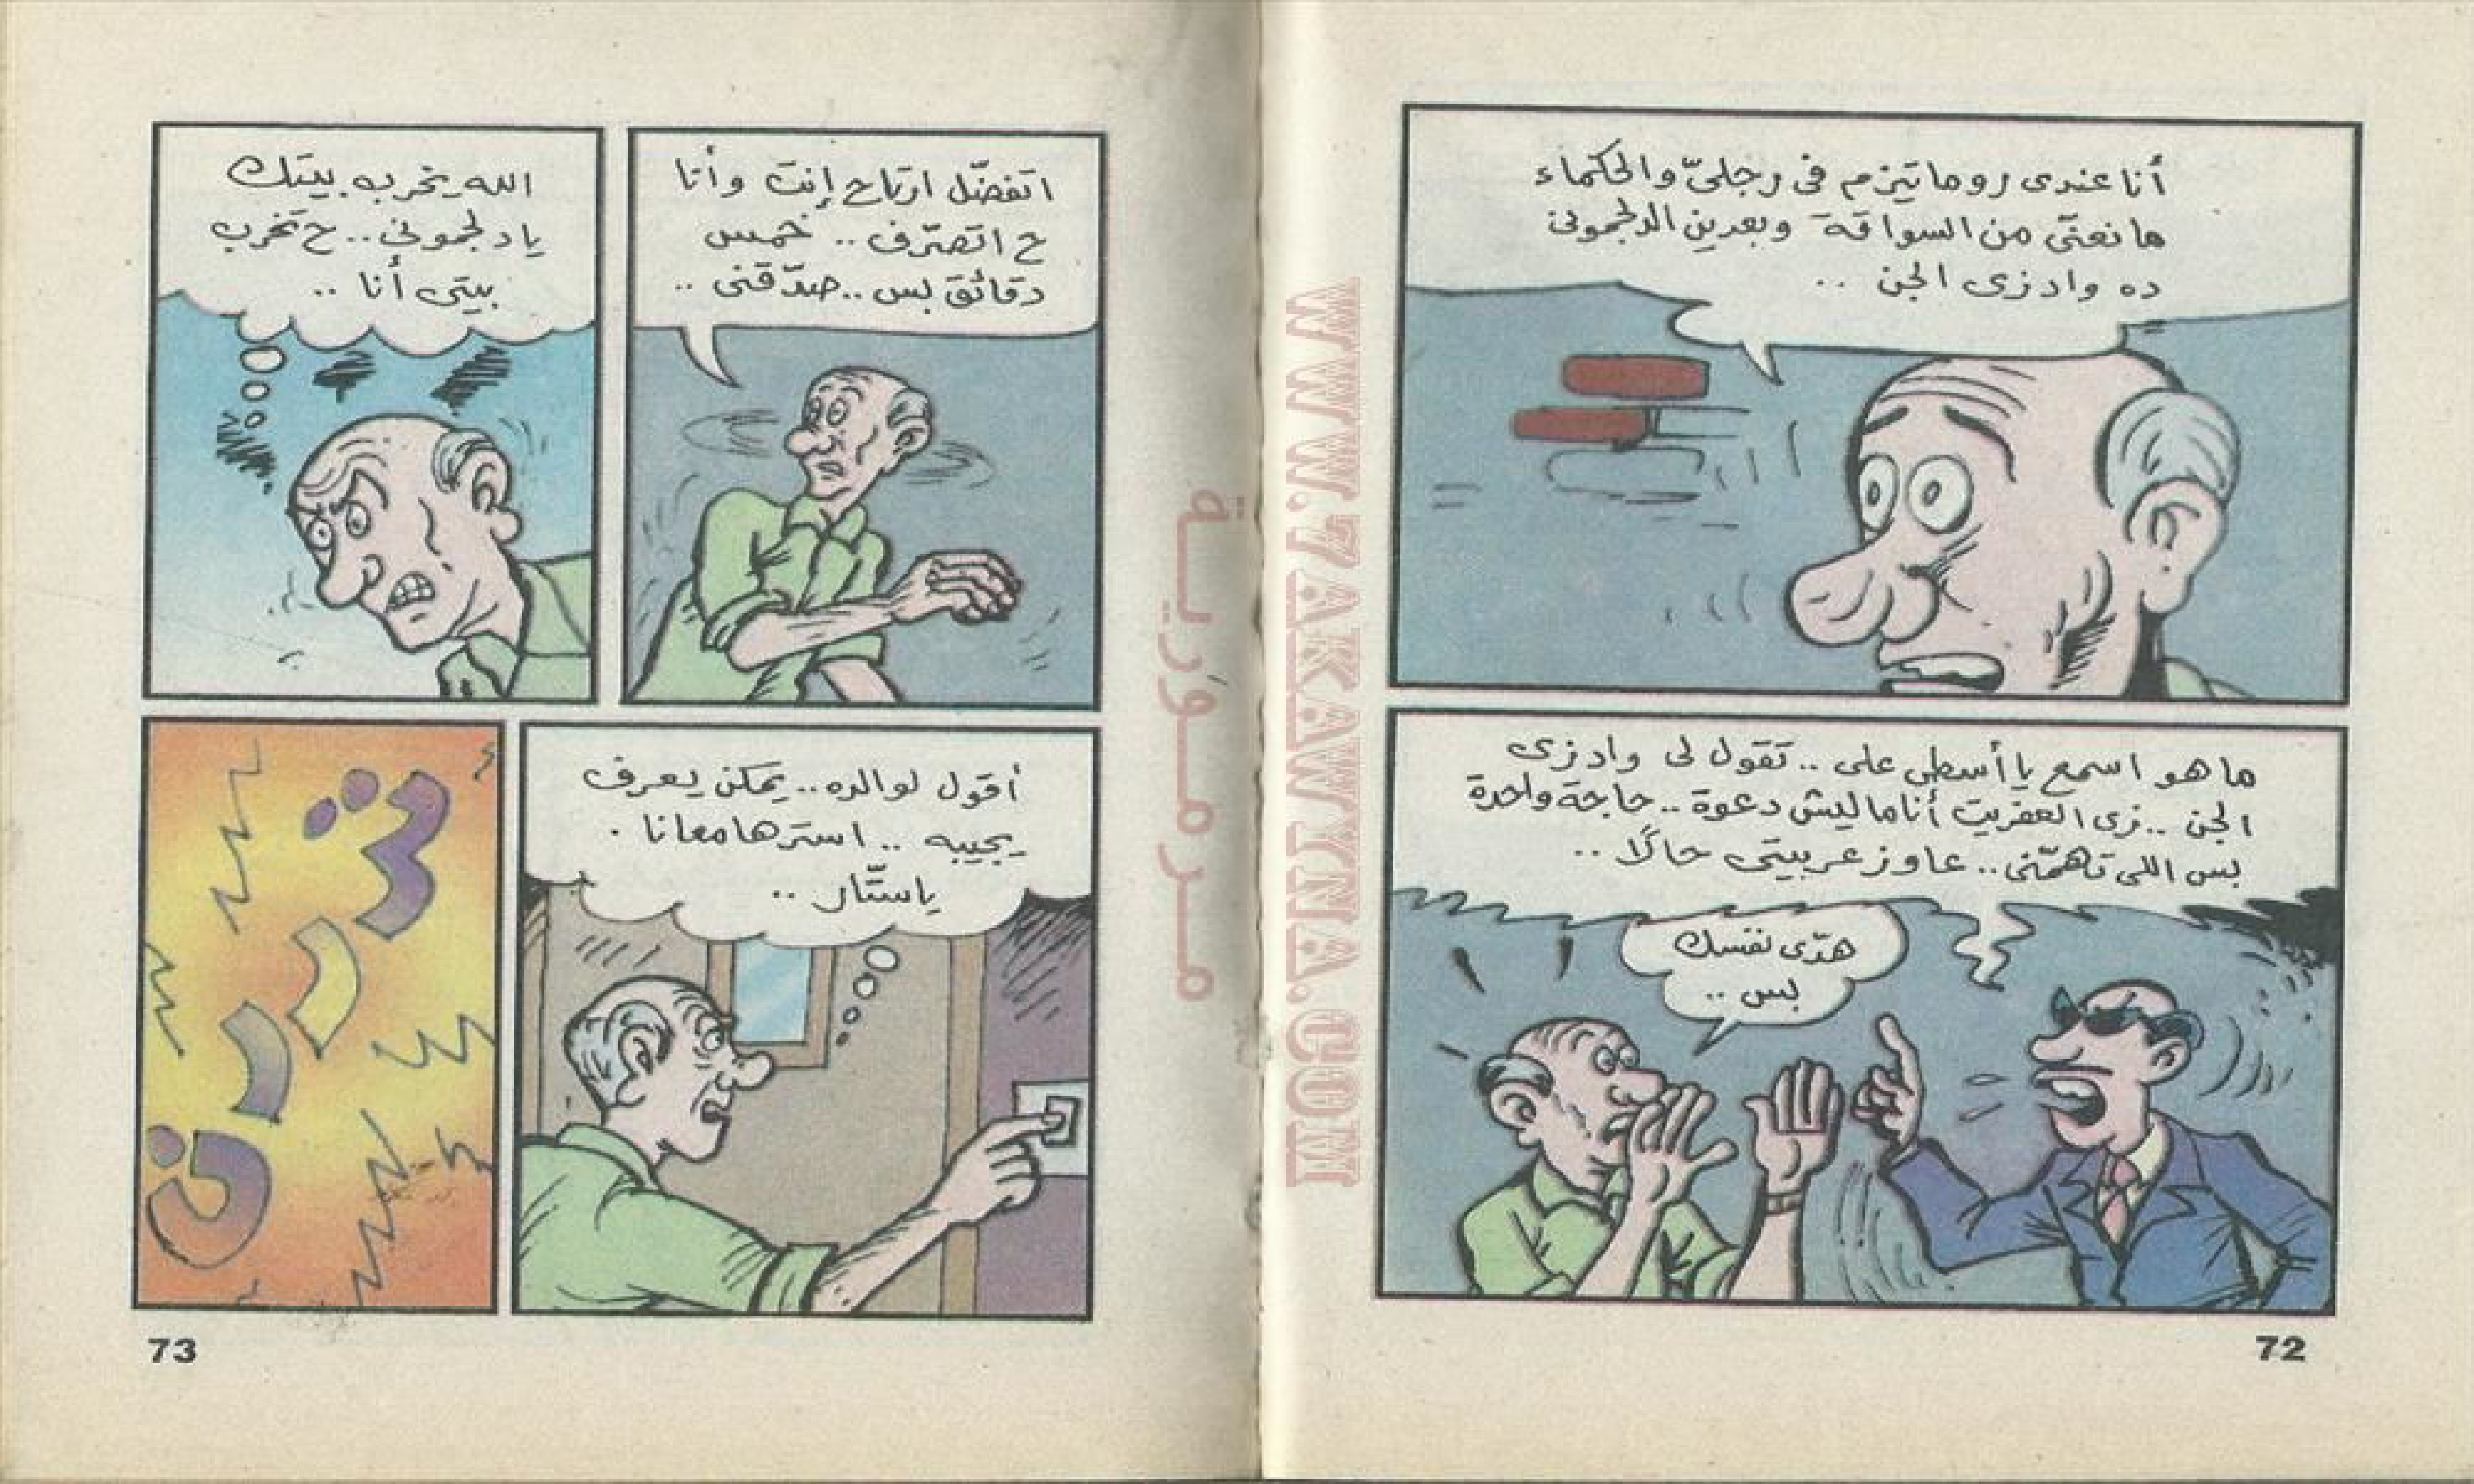 أنا عندى روماتيزم فى رجلىّ والحكماء
مانعنّى من السواقة وبعدين الدلجمونى
ده واد زى الجن ..
ما هو اسمع يا أسطى على .. تقول لى واد زى
الجن .. زى العفريت أنا ماليش دعوة .. حاجة واحدة
بس اللى تاهمّنى .. عاوز عربيتى حالًا ..
هدّى نفسك
بس ..
72
اتفضّل ارتاح إنت وأنا
ح اتصرّف .. خمس
دقائق بس .. صدّقنى ..
الله يخرب بيتك
يا دلجمونى .. ح تخرب
بيتى أنا ..
أقول لوالده .. يمكن يعرف
يجيبه .. استرها معانا .
يا ستّار ..
ترررن
73
مرمورية
WWW.7AKAWYNA.COM